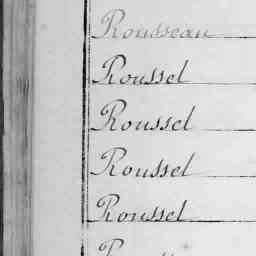 Rousseau
Roussel
Roussel
Roussel
Roussel